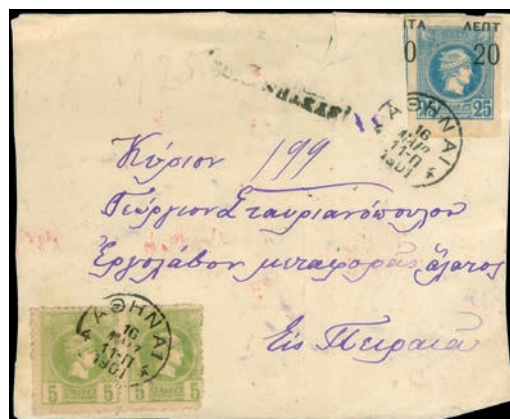 ΙΤΑ ΛΕΠΤ
0 20
25
ΑΘΗΝΑΙ
16
ΜΑΡ
11-Π
1901
Κύριον 199
Γεώργιον Σταυριανόπουλον
Ἐργολάβον μεταφορᾶς ἅλατος
Εἰς Πειραιᾶ
ΑΘΗΝΑΙ
16
ΜΑΡ
11-Π
1901
5 5 5